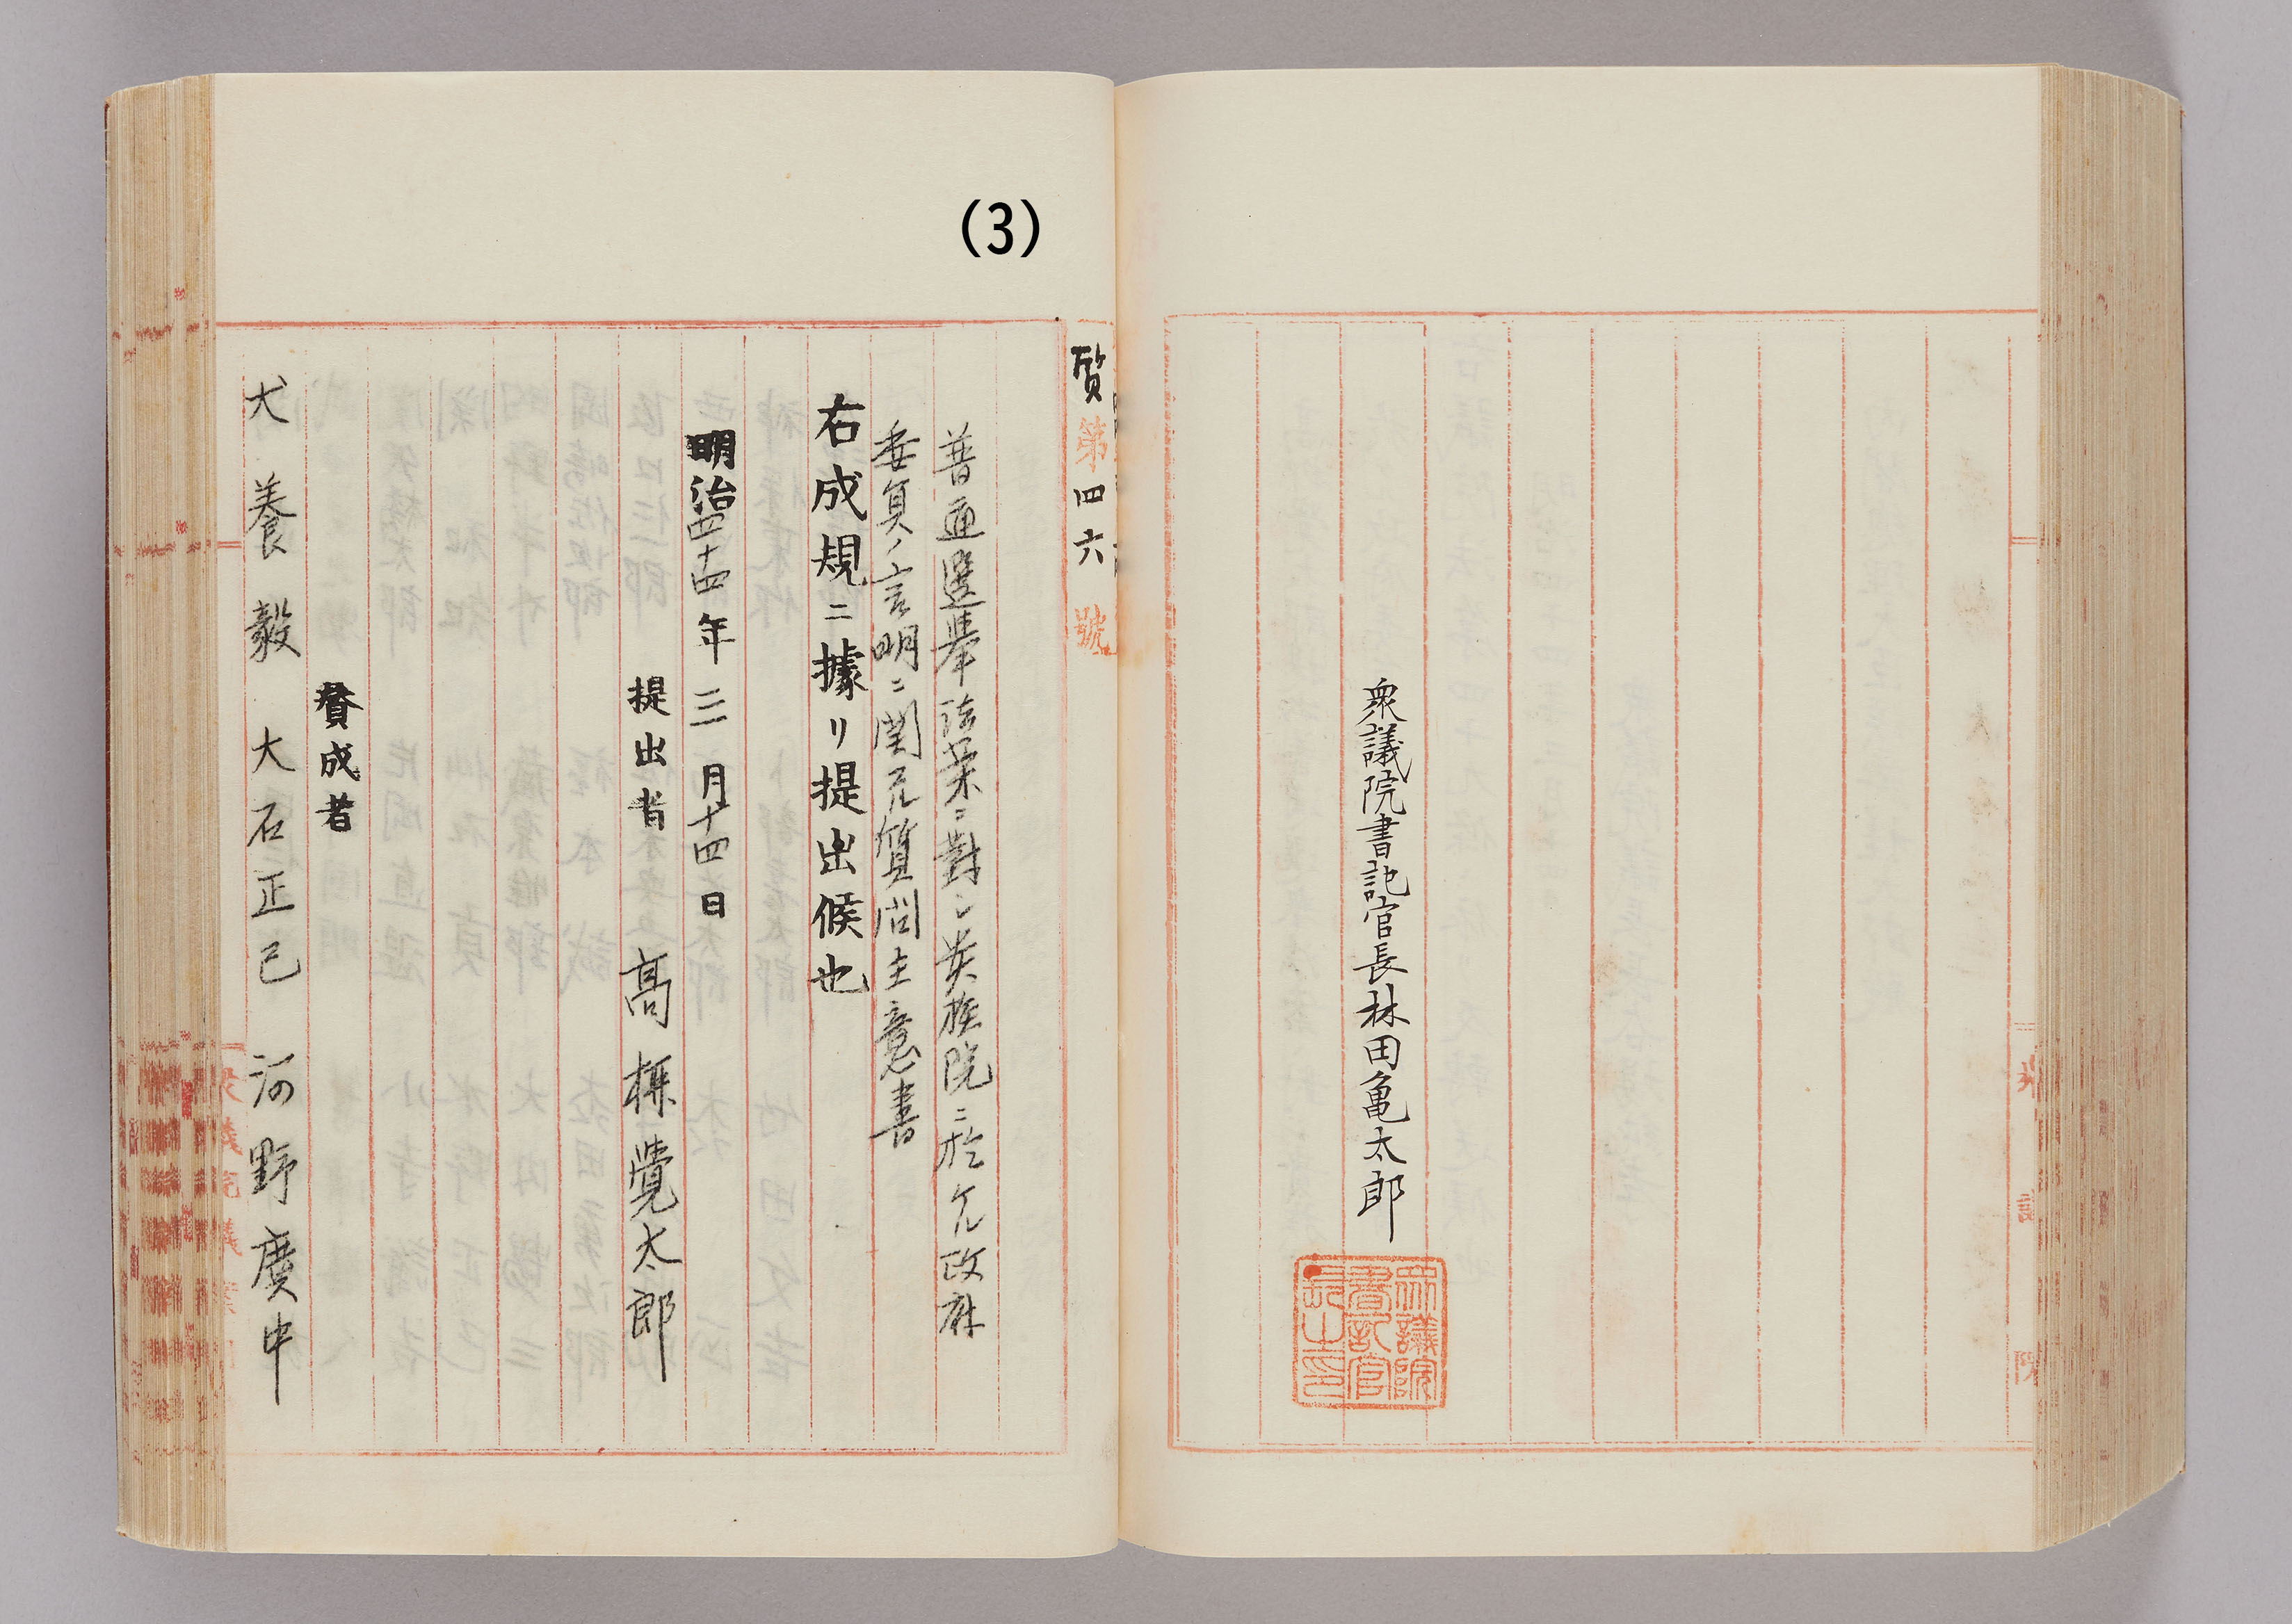 衆議院書記官長林田亀太郎
衆議院
書記官
長之印
(3)
質第四六號
普通選擧法案ニ對シ貴族院ニ於ケル政府
委員ノ言明ニ関スル質問主意書
右成規ニ據リ提出候也
明治四十四年三月十四日
提出者 高栁覺太郎
賛成者
犬養毅 大石正己 河野廣中